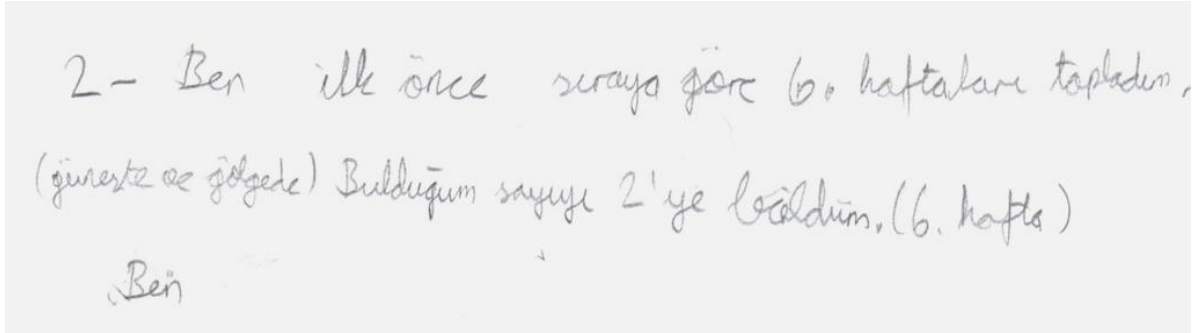 2- Ben ilk önce sıraya göre 6. haftaları topladım.
(güneşte ve gölgede) Bulduğum sayıyı 2'ye böldüm. (6. hafta)
Ben